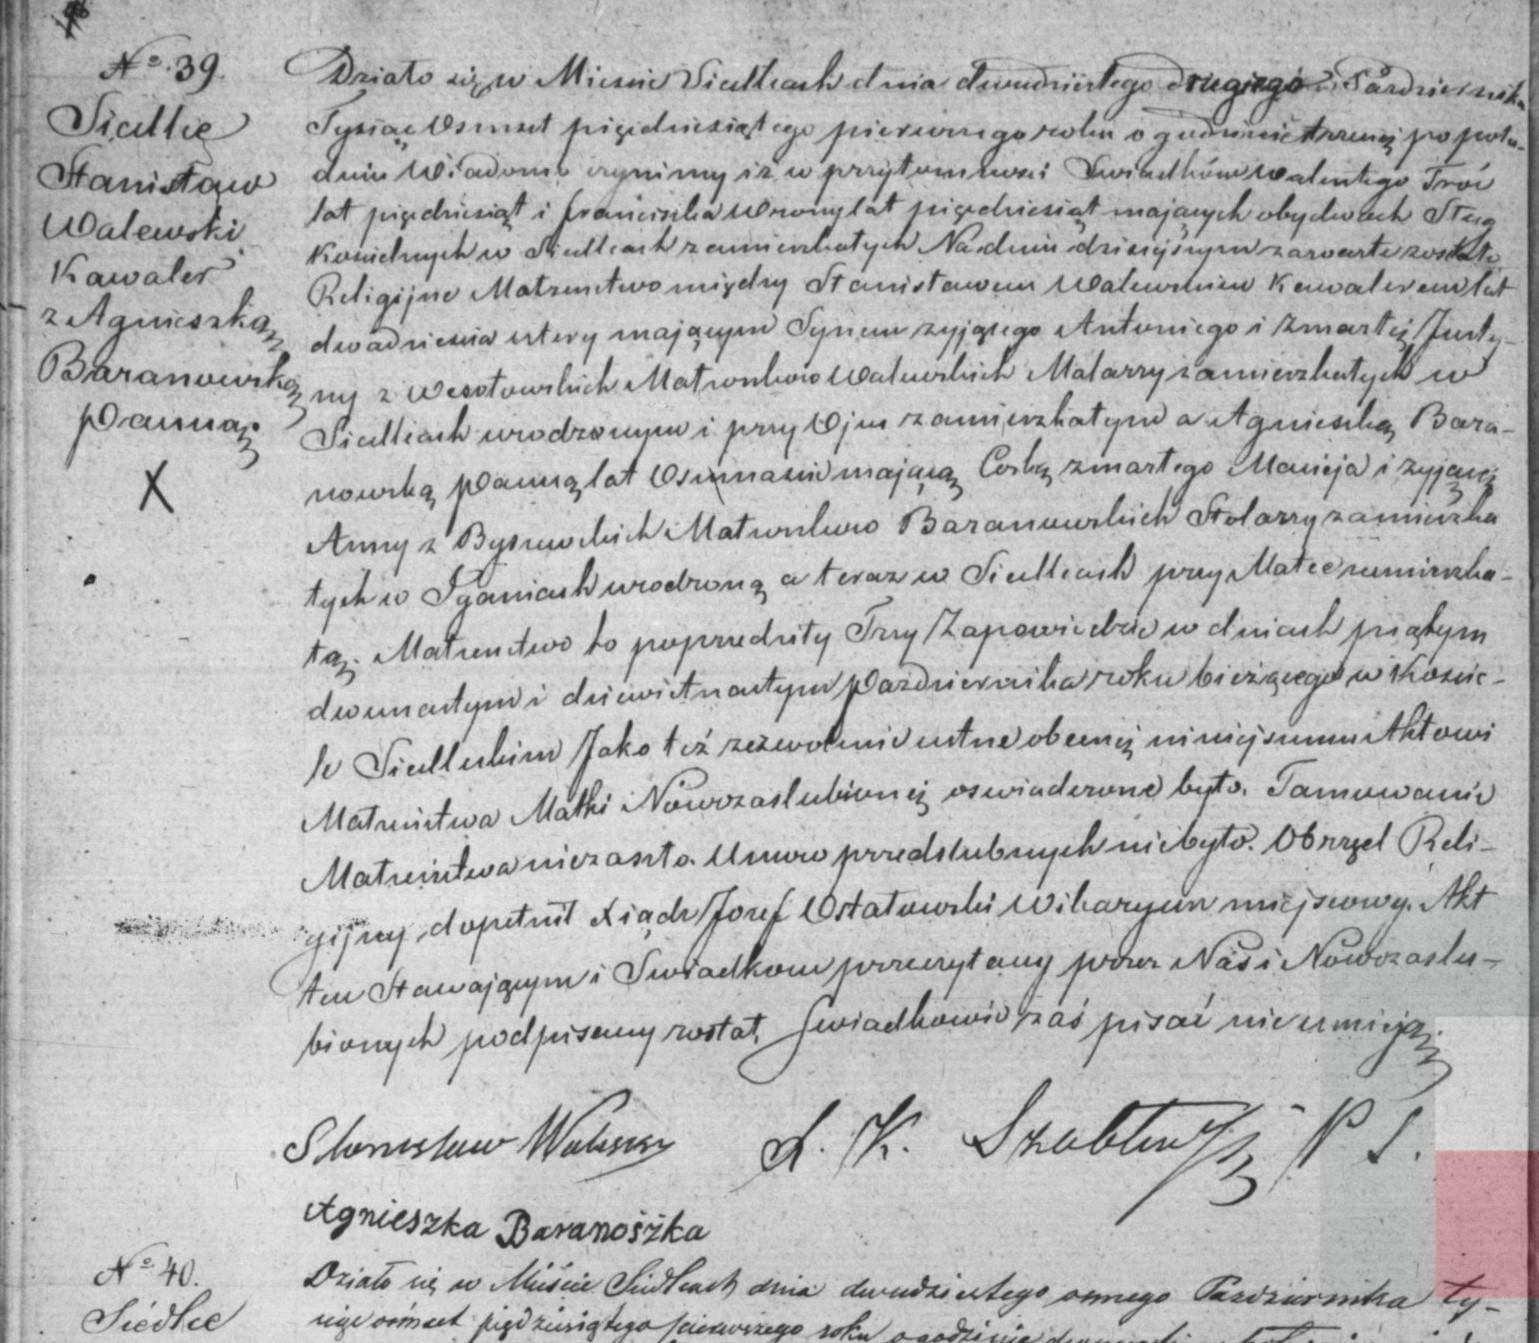 No. 39.
Siedlce
Stanisław
Walewski
Kawaler
z Agnieszką
Baranowską
Panną.
X
Działo się w Mieście Siedlcach dnia dwudziestego drugiego Pazdziernika
Tysiąc Osmset pięćdziesiątego pierwszego roku o godzinie trzeciej po połu-
dniu Wiadomo czynimy iż w przytomności Swiadków Walentego Tróć
lat pięćdziesiąt i franciszka Wrony lat pięćdziesiąt mających obydwoch Sług
Koscielnych w Siedlcach zamieszkałych Na dniu dzisiejszym zawarte zostało
Religijne Małzenstwo między Stanisławem Walewskim Kawalerem lat
dwadziescia cztery mającym Synem zyjącego Antoniego i Zmarłej Justy-
ny z Wesołowskich Małzonkow Walewskich Malarzy zamieszkałych w
Siedlcach urodzonym i przy Ojcu zamieszkałym a Agnieszką Bara-
nowską Panną lat Osmnascie mającą Corką zmarłego Macieja i zyjącej
Anny z Byszewskich Małzonkow Baranowskich Stolarzy zamieszka
łych w Iganiach urodzoną a teraz w Siedlcach przy Matce zamieszka-
łą. Małzenstwo to poprzedziły Trzy Zapowiedzie w dniach piątym
dwunastym i dziewietnastym Pazdziernika roku bieżącego w Koscie-
le Siedleckim Jako też zezwolenie ustne obecnej niniejszemu Aktowi
Małzeństwa Matki Nowozaslubionej oswiadczone było. Tamowanie
Małzeństwa niezaszło. Umow przedslubnych niebyło. Obrzęd Reli-
gijny dopełnił Xiądz Jozef Ostatowski Wikaryusz miejscowy. Akt
ten Stawającym i Swiadkom przeczytany przez Nas i Nowozaslu-
bionych podpisany został, Swiadkowie zaś pisać nie umieją.
Stanisław Walewski X. K. P S.
Agnieszka Baranośżka
No. 40.
Siedlce
Działo się w Mieście Siedlcach dnia dwudziestego osmego Pazdziernika ty-
siąc ośmset pięćdziesiątego pierwszego roku o godzinie